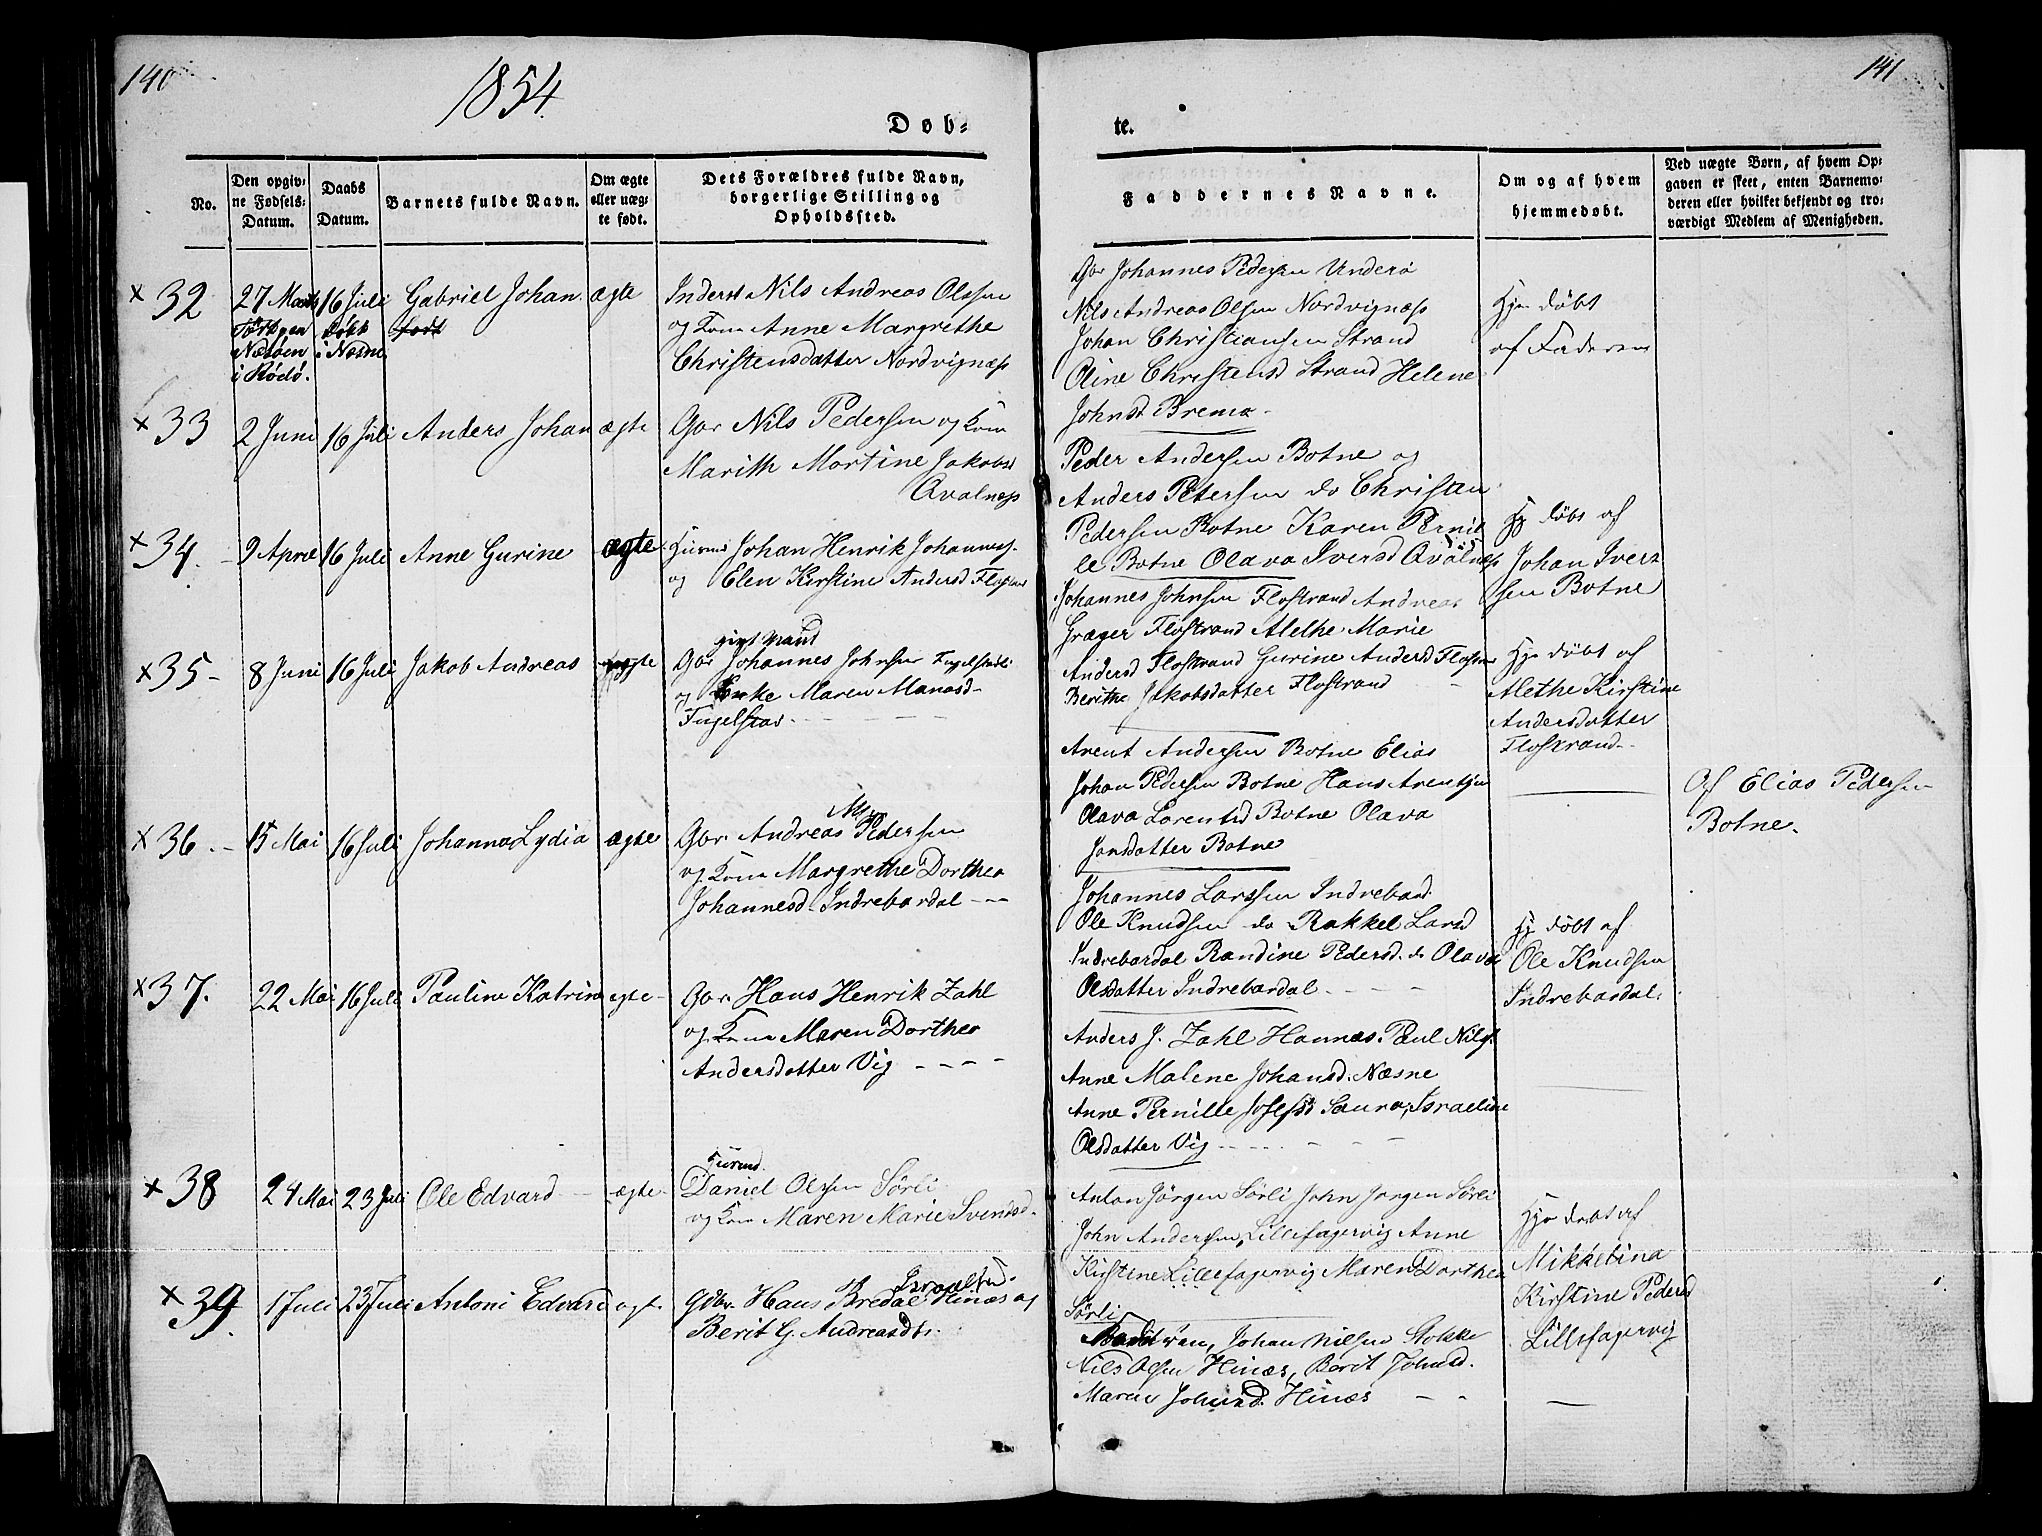 140
1854.
141
Døb-
te.
No.
Den opgiv-
ne Fødsels-
Datum.
Daabs
Datum.
Barnets fulde Navn.
Om ægte
eller uæg-
te født.
Dets Forældres fulde Navn,
borgerlige Stilling og
Opholdssted.
Faddernes Navne.
Om og af hvem
hjemmedøbt.
Ved uægte Børn, af hvem Op-
gaven er skeet, enten Barnemo-
deren eller hvilket bekjendt og tro-
værdigt Medlem af Menigheden.
x 32
27 Marts
Næsøen
i Rødø.
16 Juli
i Næsne
Gabriel Johan.
født
ægte
Inderst Nils Andreas Olsen
og Kone Anne Margrethe
Christensdatter Nordvignæss
Gbr Johannes Pedersen Underø
Nils Andreas Olsen Nordvignæss
Johan Christiansen Strand
Oline Christensd Strand Helene
Johnsd Bremo
Hje døbt
af Faderen
x 33
2 Juni
16 Juli
Anders Johan
ægte
Gbr Nils Pedersen og Kone
Marith Martine Jakobsd
Avalnæss
Peder Andersen Botne og
Anders Petersen do Christen
Pedersen Botne Karen Pernil
le Botne Olava Iversd Avalnæss
Hj døbt af
Johan Iver
sen Botne
x 34.
9 April
16 Juli
Anne Gurine
ægte
Huusmd Johan Henrik Johanness.
og Elen Kirstine Andersd Flostrand
Johannes Johnsen Flostrand Andreas
Græger Flostrand Alethe Marie
Andersd Flostrand Gurine Andersd Flostrand
Berithe Jakobsdatter Flostrand
Hje døbt af
Alethe Kirstine
Andersdatter
Flostrand
x 35
8 Juni
16 Juli
Jakob Andreas
uægte
gift Mand
Gbr Johannes Johnsen Fugelstadli
og Enke Maren Manasd
Fugelstad
Arent Andersen Botne Elias
Johan Pedersen Botne Hans Arentsen
Olava Lorentsd Botne Olava
Jonsdatter Botne
Af Elias Pedersen
Botne.
x 36.
15 Mai
16 Juli
Johanna Lydia
ægte
Gbr. Andreas Pedersen
og Kone Margrethe Dorthea
Johannesd Indrebardal
Johannes Larsen Indrebard.
Ole Knudsen do Rakkel Larsd
Indrebardal Randine Pedersd. do Olava
Olsdatter Indrebardal
Hj døbt af
Ole Knudsen
Indrebardal.
x 37.
22 Mai
16 Juli
Pauline Katrine
egte
Gbr. Hans Henrik Zahl
og Kone Maren Dorthea
Andersdatter Vig
Anders J. Zahl Hannæs Paul Nils.
Anne Malene Johansd. Næsne
Anne Pernille Josefsd Saura, Israeline
Olsdatter Vig
x 38
24 Mai
23 Juli
Ole Edvard
egte
Huusmd.
Daniel Olsen Sørli
og Kone Maren Marie Svendsd
Anton Jørgen Sørli John Jørgen Sørli
John Andersen Lillefagervig Anne
Kirstine Lillefagervig Maren Dorthea
Sørli
Hje døbt af
Mikkelina
Kirstine Pedersd
Lillefagervig
x 39.
1 Juli
23 Juli
Antoni Edvard
egte
Israelsen
Gdbr. Hans Bredal Hinæs og
Berit G. Andreasdtr.
Johan Nilsen Stokke
Nils Olsen Hinæs, Berit Johnsd.
Maren Johnsd. Hinæs